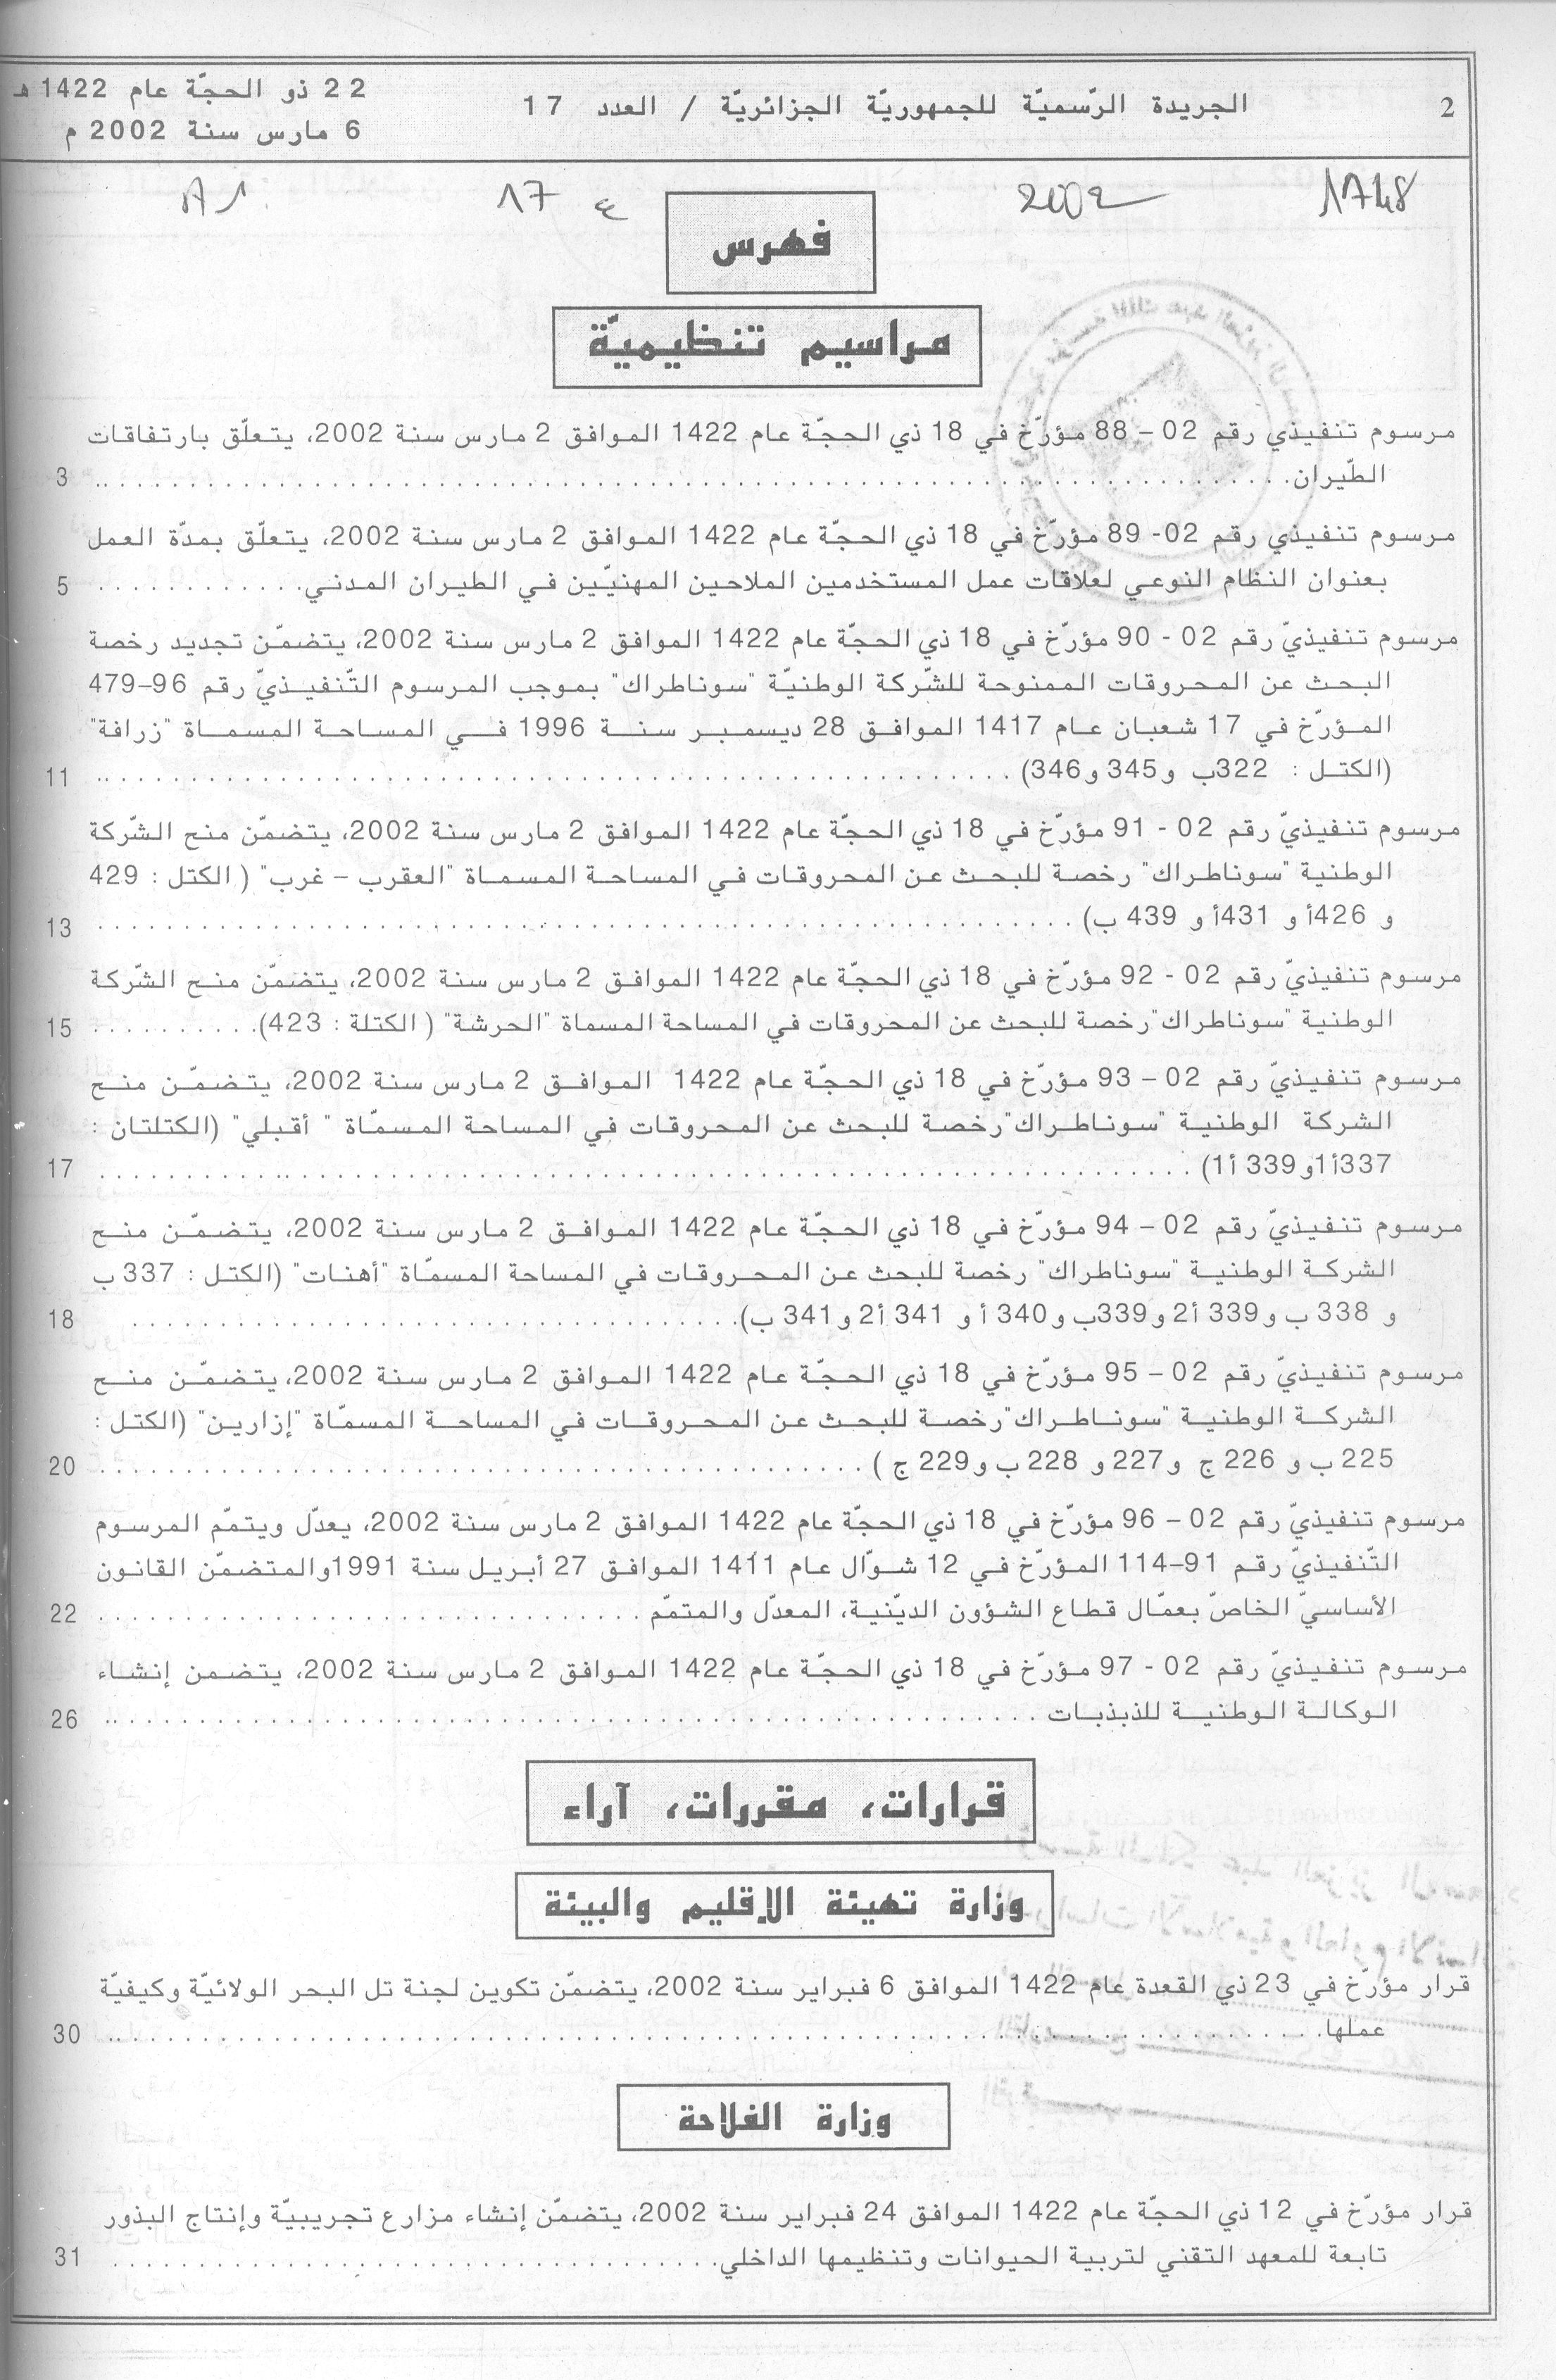 2
الجريدة الرّسميّة للجمهوريّة الجزائريّة / العدد 17
22 ذو الحجّة عام 1422 هـ
6 مارس سنة 2002 م
1748 2002 ع 17
فهرس
مراسيم تنظيميّة
مرسوم تنفيذي رقم 02 – 88 مؤرّخ في 18 ذي الحجّة عام 1422 الموافق 2 مارس سنة 2002، يتعلّق بارتفاقات
الطّيران. . . . . . . . . . 3
مرسوم تنفيذي رقم 02- 89 مؤرّخ في 18 ذي الحجّة عام 1422 الموافق 2 مارس سنة 2002، يتعلّق بمدّة العمل
بعنوان النظام النوعي لعلاقات عمل المستخدمين الملاحين المهنيّين في الطيران المدني. . . . . . . . . . 5
مرسوم تنفيذيّ رقم 02 - 90 مؤرّخ في 18 ذي الحجّة عام 1422 الموافق 2 مارس سنة 2002، يتضمّن تجديد رخصة
البحث عن المحروقات الممنوحة للشّركة الوطنيّة "سوناطراك" بموجب المرسوم التّنفيـذيّ رقم 96–479
المؤرّخ في 17 شعبان عام 1417 الموافق 28 ديسمبر سنة 1996 في المساحة المسماة "زرافة"
(الكتل : 322ب و345 و346) . . . . . . . . . . 11
مرسوم تنفيذيّ رقم 02 - 91 مؤرّخ في 18 ذي الحجّة عام 1422 الموافق 2 مارس سنة 2002، يتضمّن منح الشّركة
الوطنية "سوناطراك" رخصة للبحث عن المحروقات في المساحة المسماة "العقرب – غرب" ( الكتل : 429
و 426أ و 431أ و 439 ب) . . . . . . . . . . 13
مرسوم تنفيذيّ رقم 02 - 92 مؤرّخ في 18 ذي الحجّة عام 1422 الموافق 2 مارس سنة 2002، يتضمّن منح الشّركة
الوطنية "سوناطراك"رخصة للبحث عن المحروقات في المساحة المسماة "الحرشة" ( الكتلة : 423). . . . . . . . . . 15
مرسوم تنفيذيّ رقم 02 – 93 مؤرّخ في 18 ذي الحجّة عام 1422 الموافق 2 مارس سنة 2002، يتضمّن منح
الشركة الوطنية "سوناطراك"رخصة للبحث عن المحروقات في المساحة المسمّاة " أقبلي" (الكتلتان :
337أ1و 339 أ1) . . . . . . . . . . 17
مرسوم تنفيذيّ رقم 02 – 94 مؤرّخ في 18 ذي الحجّة عام 1422 الموافق 2 مارس سنة 2002، يتضمّن منح
الشركة الوطنية "سوناطراك" رخصة للبحث عن المحروقات في المساحة المسمّاة "أهنات" (الكتل : 337 ب
و 338 ب و 339 أ2 و 339ب و 340 أ و 341 أ2 و 341 ب). . . . . . . . . . 18
مرسوم تنفيذيّ رقم 02 – 95 مؤرّخ في 18 ذي الحجّة عام 1422 الموافق 2 مارس سنة 2002، يتضمّن منح
الشركة الوطنية "سوناطراك"رخصة للبحث عن المحروقات في المساحة المسمّاة "إزارين" (الكتل :
225 ب و 226 ج و 227 و 228 ب و 229 ج ) . . . . . . . . . . 20
مرسوم تنفيذيّ رقم 02 – 96 مؤرّخ في 18 ذي الحجّة عام 1422 الموافق 2 مارس سنة 2002، يعدّل ويتمّم المرسوم
التّنفيذيّ رقم 91–114 المؤرّخ في 12 شوّال عام 1411 الموافق 27 أبريل سنة 1991والمتضمّن القانون
الأساسيّ الخاصّ بعمّال قطاع الشؤون الديّنية، المعدّل والمتمّم . . . . . . . . . . 22
مرسوم تنفيذيّ رقم 02 - 97 مؤرّخ في 18 ذي الحجّة عام 1422 الموافق 2 مارس سنة 2002، يتضمن إنشاء
الوكالة الوطنية للذبذبات . . . . . . . . . . 26
قرارات، مقررات، آراء
وزارة تهيئة الإقليم والبيئة
قرار مؤرّخ في 23 ذي القعدة عام 1422 الموافق 6 فبراير سنة 2002، يتضمّن تكوين لجنة تل البحر الولائيّة وكيفيّة
عملها. . . . . . . . . . 30
وزارة الفلاحة
قرار مؤرّخ في 12 ذي الحجّة عام 1422 الموافق 24 فبراير سنة 2002، يتضمّن إنشاء مزارع تجريبيّة وإنتاج البذور
تابعة للمعهد التقني لتربية الحيوانات وتنظيمها الداخلي. . . . . . . . . . 31